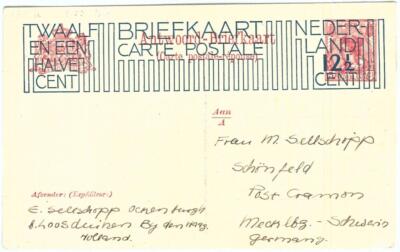 TWAALF BRIEFKAART NEDER-
EN EEN CARTE POSTALE LAND
HALVE 12½
CENT CENT
Antwoord-Briefkaart
(Carte postale-Réponse)
Aan
A
Frau M. Sellschopp
Schönfeld
Post Cramon
Mecklbg. - Schwerin
Germany.
Afzender: (Expéditeur:)
E. Sellschopp Ockenburgh
b. Loosduinen By den Haag.
Holland.